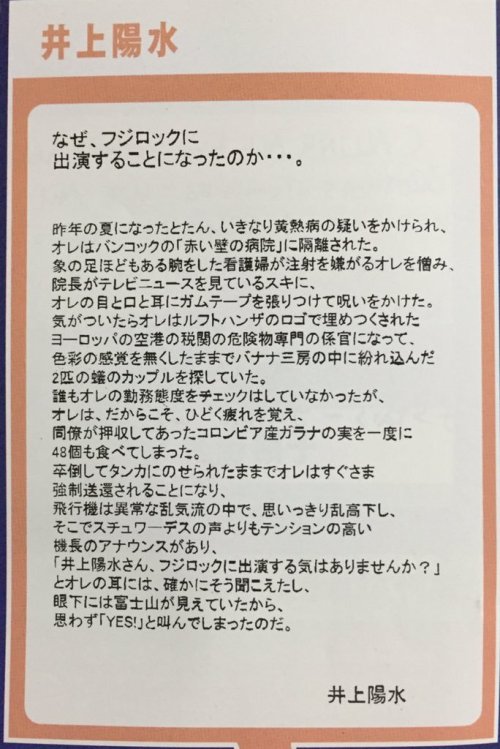 井上陽水
なぜ、フジロックに
出演することになったのか・・・。
昨年の夏になったとたん、いきなり黄熱病の疑いをかけられ、
オレはバンコックの「赤い壁の病院」に隔離された。
象の足ほどもある腕をした看護婦が注射を嫌がるオレを憎み、
院長がテレビニュースを見ているスキに、
オレの目と口と耳にガムテープを張りつけて呪いをかけた。
気がついたらオレはルフトハンザのロゴで埋めつくされた
ヨーロッパの空港の税関の危険物専門の係官になって、
色彩の感覚を無くしたままでバナナ三房の中に紛れ込んだ
2匹の蟻のカップルを探していた。
誰もオレの勤務態度をチェックはしていなかったが、
オレは、だからこそ、ひどく疲れを覚え、
同僚が押収してあったコロンビア産ガラナの実を一度に
48個も食べてしまった。
卒倒してタンカにのせられたままでオレはすぐさま
強制送還されることになり、
飛行機は異常な乱気流の中で、思いっきり乱高下し、
そこでスチュワーデスの声よりもテンションの高い
機長のアナウンスがあり、
「井上陽水さん、フジロックに出演する気はありませんか?」
とオレの耳には、確かにそう聞こえたし、
眼下には富士山が見えていたから、
思わず「YES!」と叫んでしまったのだ。
井上陽水